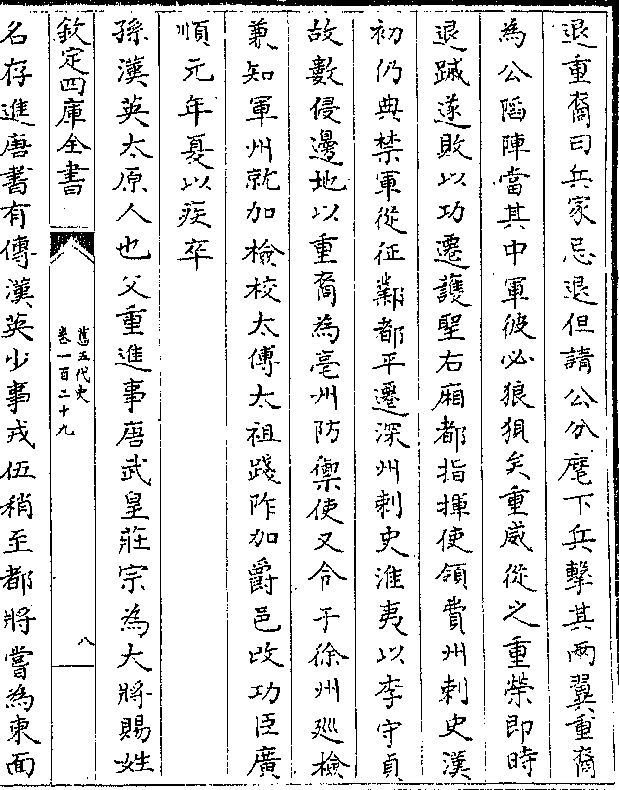 退重裔曰兵家忌退但請公分麾下兵擊其兩翼重裔
為公䧟陣當其中軍彼必狼狽矣重威從之重榮即時
退蹙遂敗以功遷護聖右廂都指揮使領費州刺史漢
初仍典禁軍從征鄴都平遷深州刺史淮夷以李守貞
故數侵邊地以重裔為亳州防禦使又令于徐州廵檢
兼知軍州就加檢校太傅太祖踐阼加爵邑改功臣廣
順元年夏以疾卒
孫漢英太原人也父重進事唐武皇莊宗為大將賜姓
欽定四庫全書
舊五代史
卷一百二十九
八
名存進唐書有傳漢英少事戎伍稍至都將嘗為東面